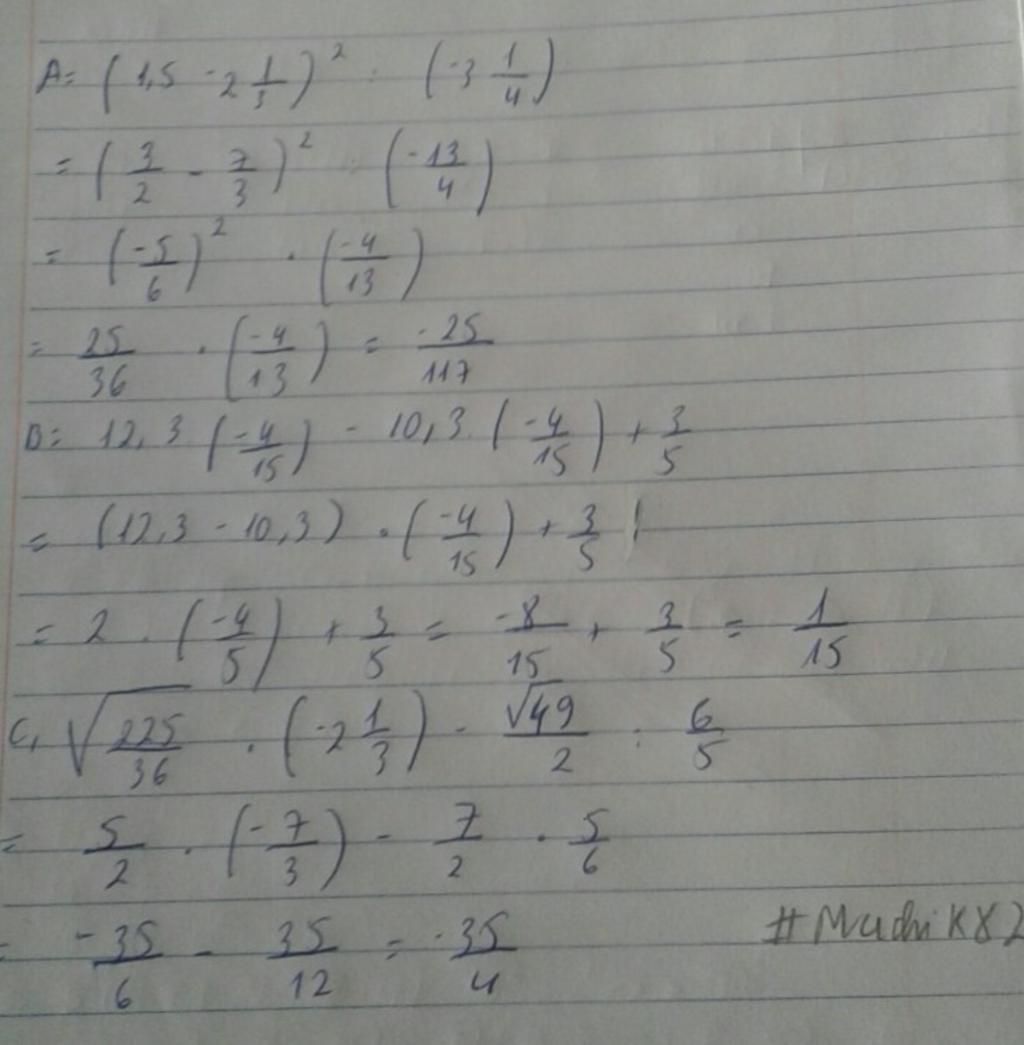 A= (1,5 - 2 1/3)² : (-3 1/4)
= (3/2 - 7/3)² : (-13/4)
= (-5/6)² . (-4/13)
= 25/36 . (-4/13) = -25/117
B= 12,3 (-4/15) - 10,3. (-4/15) + 3/5
= (12,3 - 10,3) . (-4/15) + 3/5
= 2 . (-4/5) + 3/5 = -8/15 + 3/5 = 1/15
C, √(225/36) . (-2 1/3) - √49/2 : 6/5
= 5/2 . (-7/3) - 7/2 . 5/6
= -35/6 - 35/12 = -35/4